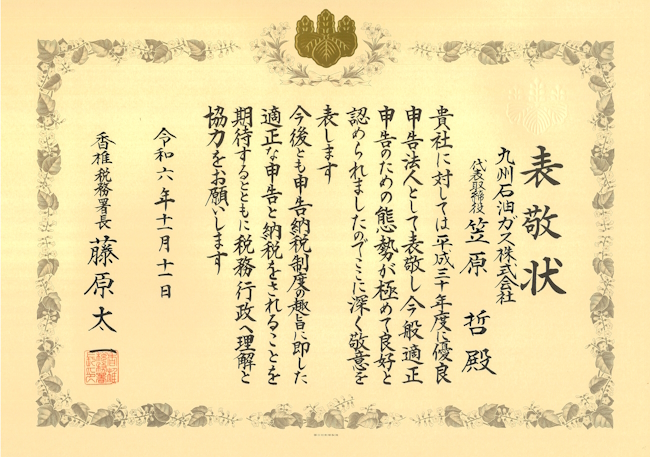 表敬状
九州石油ガス株式会社
代表取締役 笠原 哲 殿
貴社に対しては平成三十年度に優良
申告法人として表敬し今般適正
申告のための態勢が極めて良好と
認められましたのでここに深く敬意を
表します
今後とも申告納税制度の趣旨に即した
適正な申告と納税をされることを
期待するとともに税務行政へ理解と
協力をお願いします
令和六年十一月十一日
香椎税務署長 藤原太一